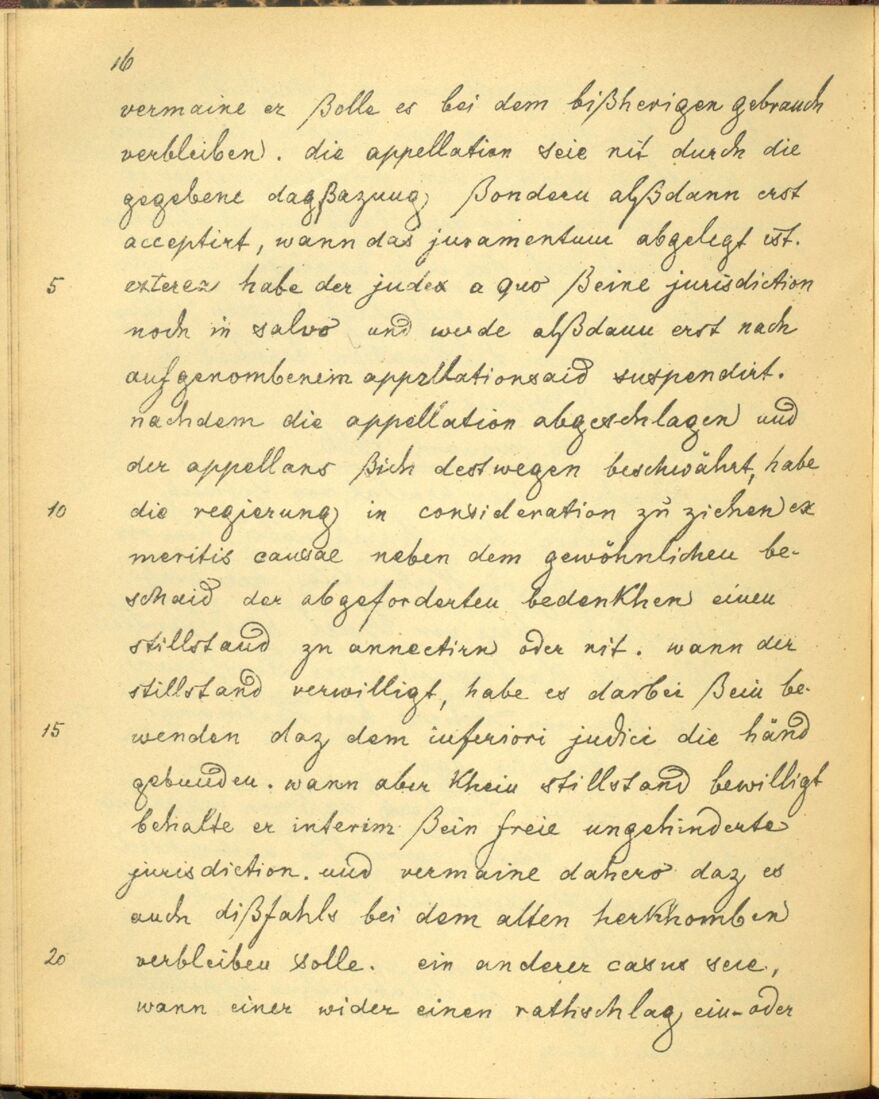 16
vermaine er ßolle es bei dem bißherigen gebrauch
verbleiben. die appellation seie nit durch die
gegebene dagßazung, ßondern alßdann erst
acceptirt, wann das juramentum abgelegt ist.
5 exterez habe der judex a quo ßeine jurisdiction
noch in salvo und werde alßdann erst nach
aufgenombenem appellationsaid suspendirt.
nachdem die appellation abgeschlagen und
der appellans ßich destwegen beschwährt, habe
10 die regierung in consideration zu ziehen ex
meritis causae neben dem gewöhnlichen be-
schaid der abgeforderten bedenkhen einen
stillstand zu annectirn oder nit. wann der
stillstand verwilligt, habe es darbei ßein be-
15 wenden daz dem inferiori judici die händ
gebunden. wann aber khein stillstand bewilligt
behalte er interim ßein freie ungehinderte
jurisdiction. und vermaine dahero daz es
auch dißfahls bei dem alten herkhomben
20 verbleiben solle. ein anderer casus seie,
wann einer wider einen rathschlag ein- oder